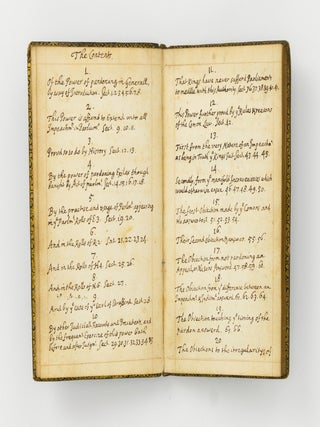 The Content.
1.
Of the Power of pardoning in Generall,
by way of Introduction. Sect. 1.2.3.4.5.6.7.8.
2.
This Power is asserted to Extend unto all
Impeachmts in Parliamt. Sect. 9, 10. 11.
3.
Proved so to do by History Sect. 12. 13.
4.
By the power of pardoning Exiles though
banish'd by Act of parlmt. Sect. 14. 15. 16. 17. 18.
5.
By the practice and usage of Parlmt. appearing
in ye Parlmt Rolls of E3. Sect. 19. 20.
6.
And in the Rolls of R2. Sect. 21. 22. 23. 24.
7.
And in the Rolls of H4. Sect. 25. 26.
8.
And in the Rolls of H6. Sect. 27.
9.
And by ye Case of ye Earl of Sect. 28
10
By other Judiciall Records and Presidents, and
by the frequent Exercise of this power both
before and after Judgmt. Sect. 29. 30. 31. 32. 33. 34. 35
11.
That Kings have never suffered Parliament
to meddle with this Authority. Sect. 36. 37. 38
12.
This Power further proved by ye Rules & reasons
of the Comon Law. Sect. 42.
13.
First from the very Nature of an Impeachmt
as being in Truth ye Kings Suit. Sect. 43. 44. 45.
14.
Secondly from ye manifold Inconveniences which
would otherwise ensue. 46. 47. 48. 49. 50.
15.
The first Objection made by ye Comons and
the answer to it. 51. 52. 53. 54.
16.
Their Second Objection Answered. 55. 56.
17.
The Objection from not pardoning an
Appeal or Murder Answered. 57. 58. 59. 60.
18.
The Objection from ye difference between an
Impeachmt & Indictmt answered. 61. 62. 63. 64.
19.
The Objection touching ye timing of the
Pardon answered. 65. 66.
20
The Objections to the irregularity of